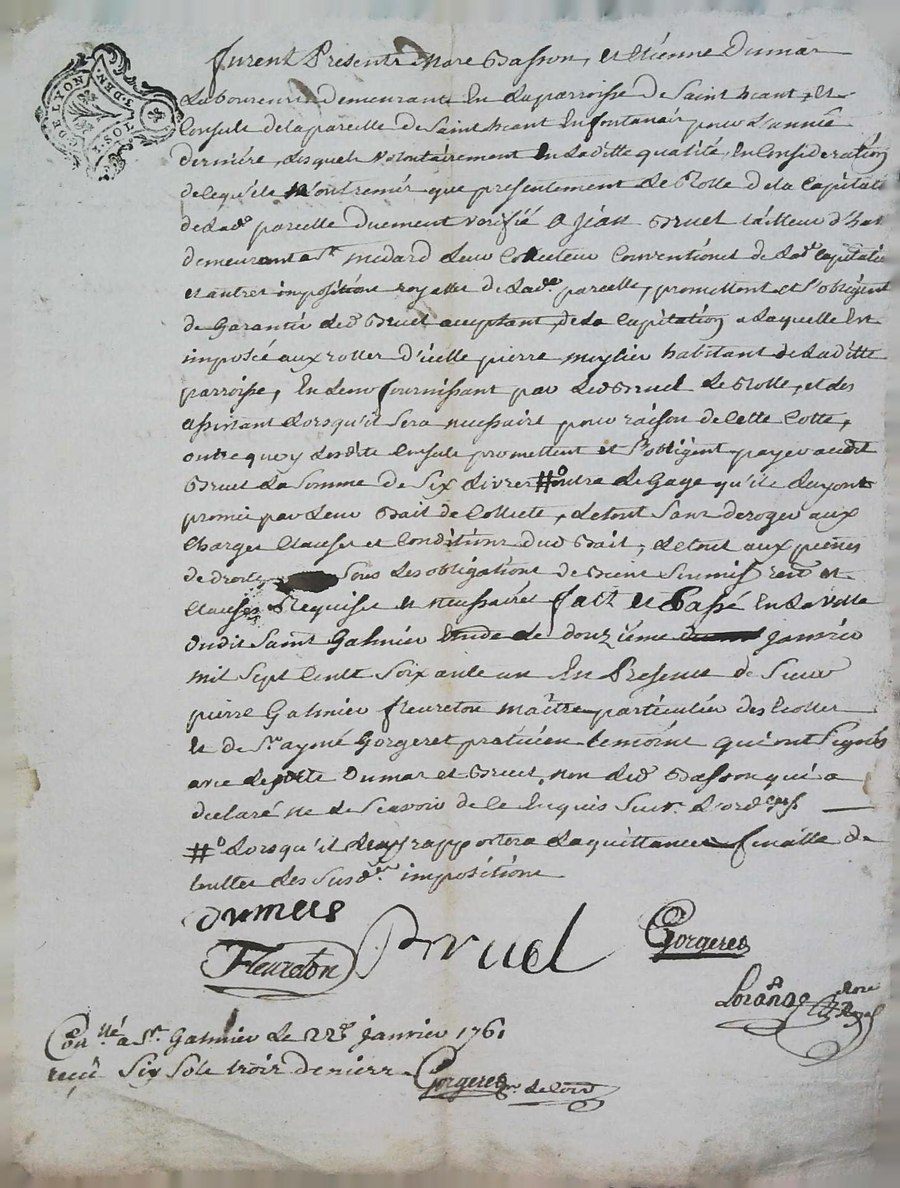 DE LYON 3. DEN.
Furent Presents Marc Basson, et Etienne Dumas
Laboureurs demeurant En La parroisse de Saint heant, Et
Consuls de la parcelle de Saint heant En fontanais pour L'année
derniere, Lesquels Volontairement En Laditte qualité, En Consideration
de ce qu'ils remir que presentement Le Rolle de la Capitati
de Lad.e parcelle duement verifié a Jean Bruel tailleur d'hab
demeurant a St. medard Leur Collecteur Conventionel de Lad.e Capitatio
et autres impositions royalles de Lad.e parcelle, promettent et s'obligent
de Garantir Led. Bruel acceptant, de la Capitation a Laquelle Est
imposé aux rolles d'icelle pierre habitant de Laditte
parroisse, En Leur fournissant par Led. Bruel Le Rolle, et Les
assistant Lorsqu'il Sera necessaire pour raison de Cette Cotte,
outre quoy Lesdits Consuls promettent et s'obligent payer audit
Bruel La Somme de Six Livres #o outre Le Gage qu'ils Luy ont
promis par Leur Bail de Collecte, Le tout Sans deroger aux
Charges Clauses et Conditions dud. Bail, Le tout aux peines
de droit Sous Les obligations de Biens Soumis. ren. et
Clauses Requises et necessaires fait et Passé En La Ville
dudit Saint Galmier Etude Le douzième janvier
mil Sept Cents Soixante un En Presence de Sieur
pierre Galmier fleureton maître particulier des Ecolles
Et de Sr. aymé Gorgeret praticien temoins qui ont Signés
avec Lesdits Dumas et Bruel, non Led. Basson qui a
declaré ne le Scavoir de ce Enquis Suiv. L'ord.
#o Lorsqu'il Leur rapportera La quittance finalle de
touttes Les Susd. impositions
Dumas
Fleureton Bruel Gorgeret
Lorange Nore Royal
Con.llé a St. Galmier Le 22e janvier 1761
reçû Six Sols trois deniers Gorgeret